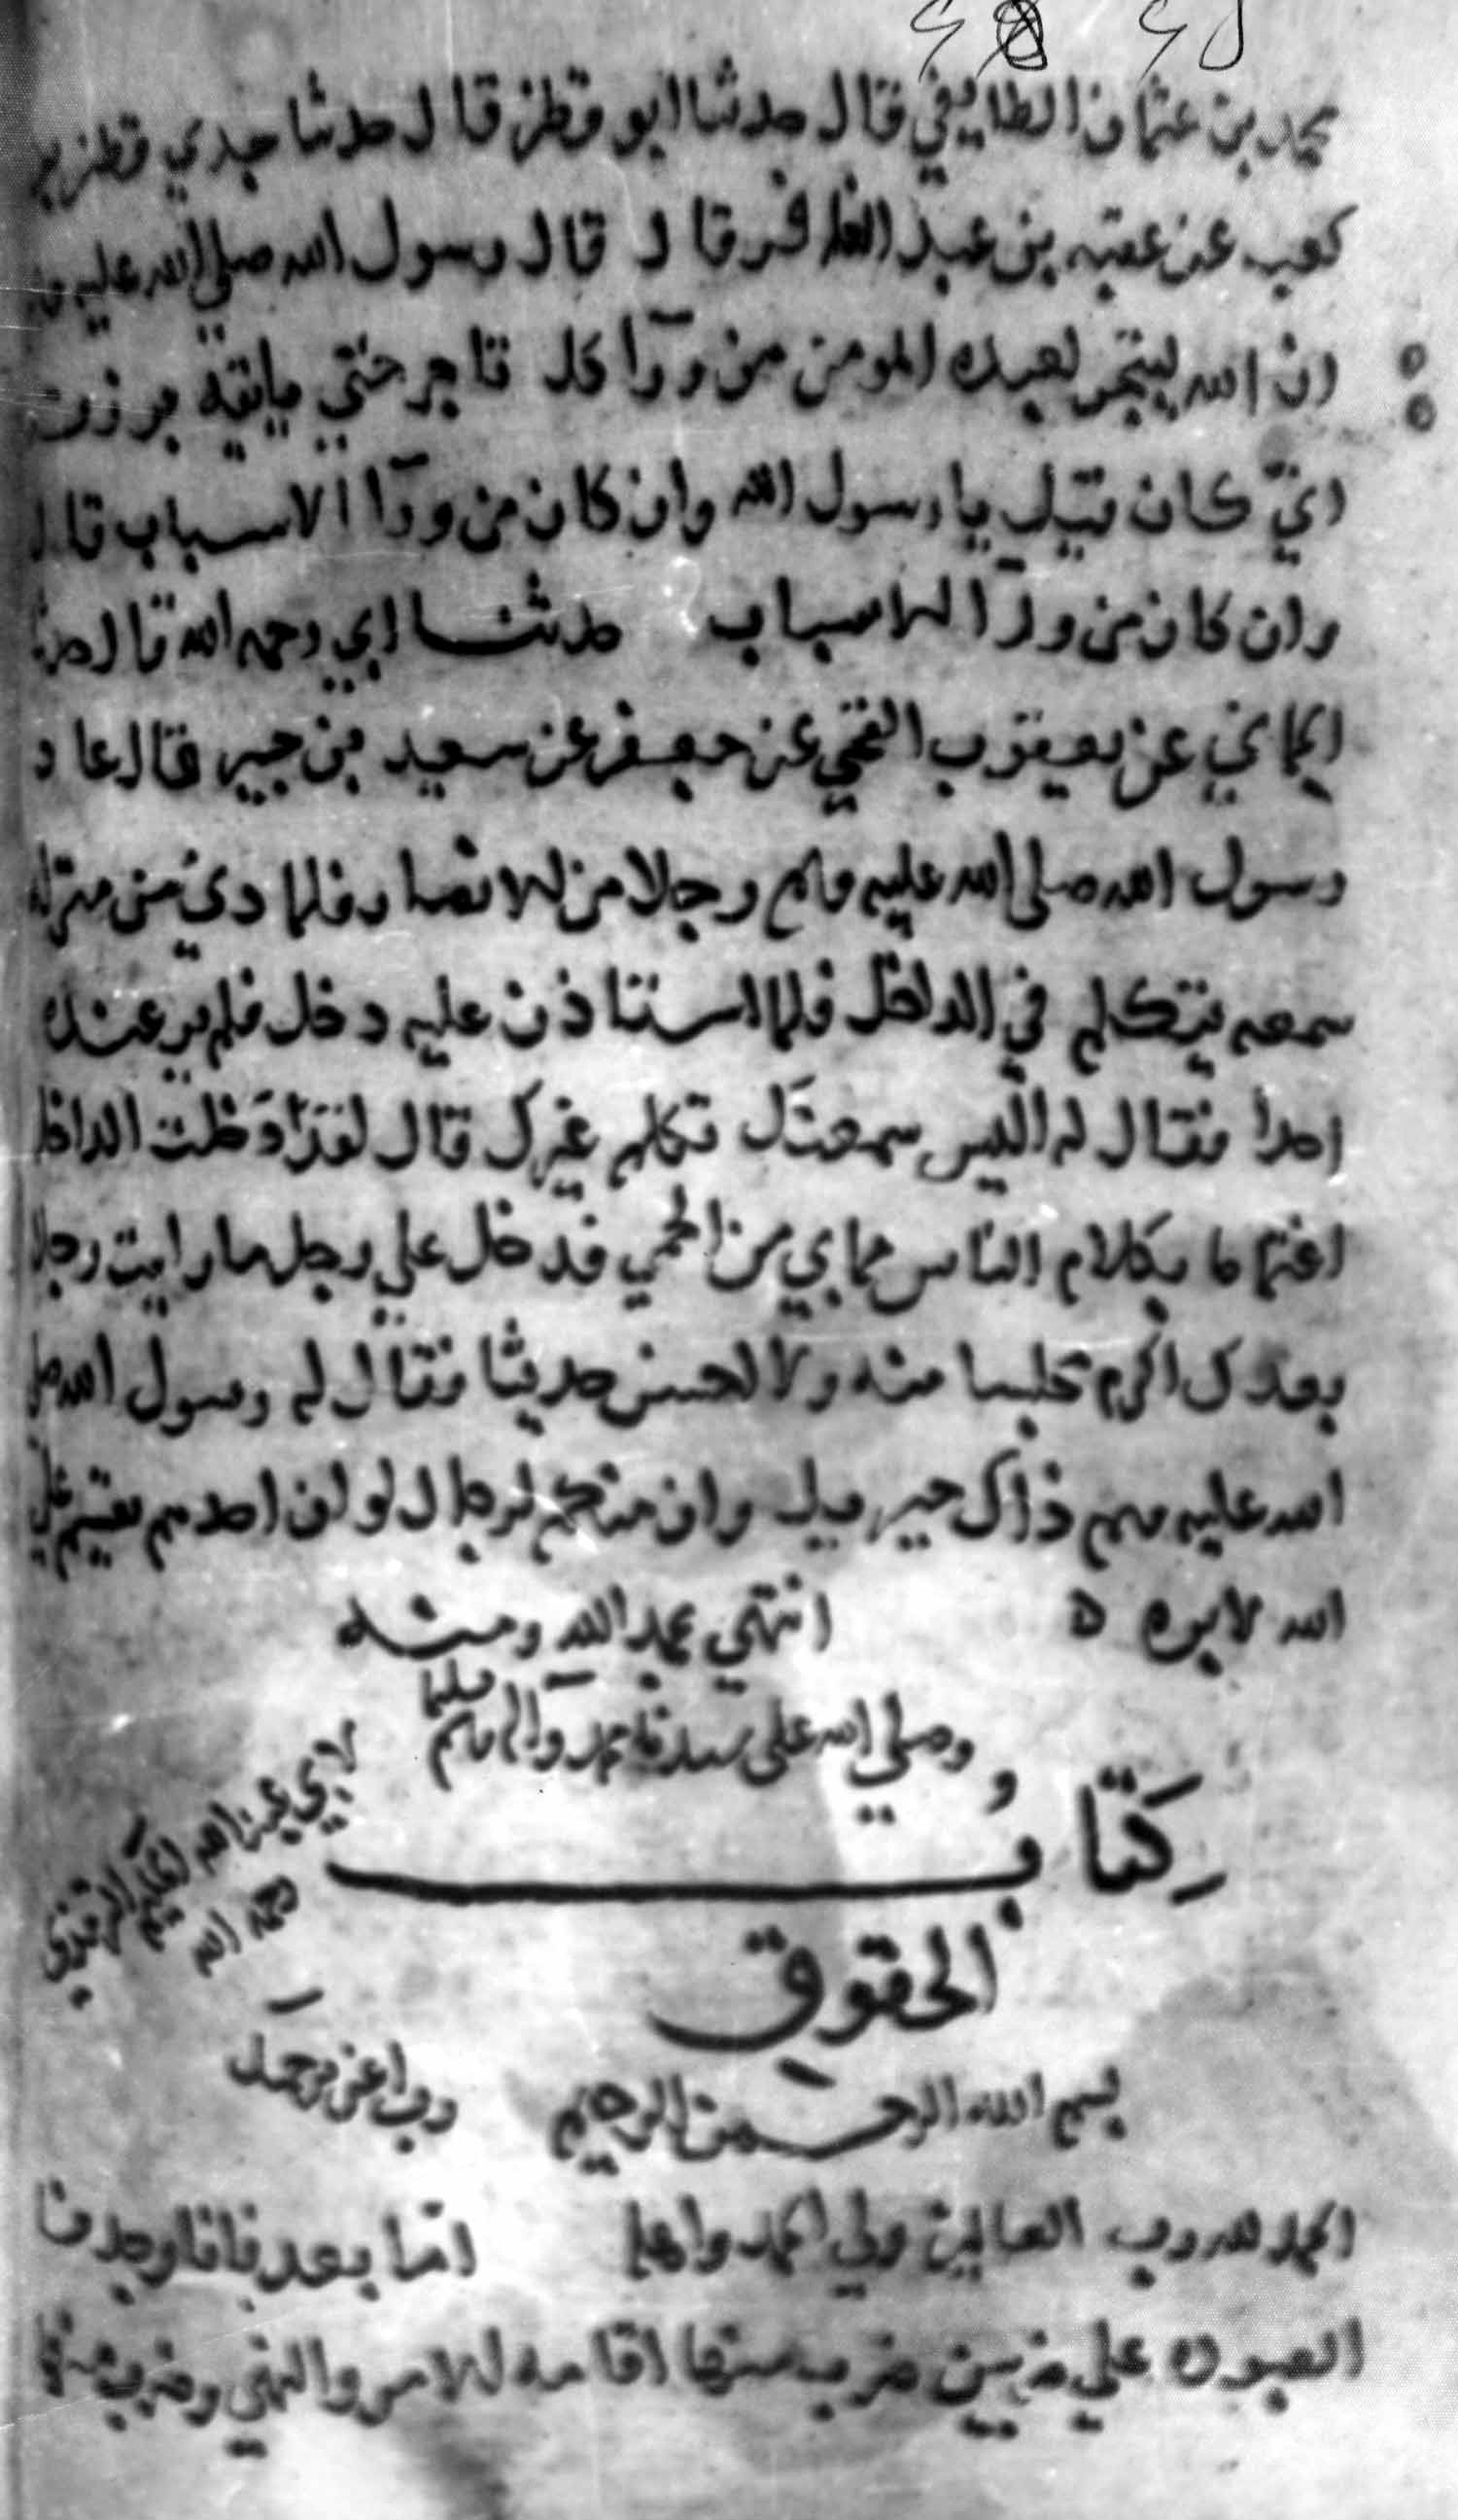 محمد بن عثمان الطايفي قال حدثنا ابو قطن قال حدثنا جدي قطن بن
كعب عن عقبه بن عبد الغافر قال قال رسول الله صلي الله عليه
ان الله ليتجر لعبده المومن من ورآ كل تاجر حتي ياتيه برزق
اني كان قيل يا رسول الله وان كان من ورآ الاسباب قال
وان كان من ورآ الاسباب حدثنا ابي رحمه الله قال حدثنا
الحماني عن يعقوب القمي عن جعفر عن سعيد بن جبير قال عاد
رسول الله صلى الله عليه وسلم رجلا من الانصار فلما دنى من منزله
سمعه يتكلم في الداخل فلما استاذن عليه دخل فلم ير عنده
احدا فقال له اليس سمعتك تكلم غيرك قال لقد دخلت الداخل
اغتماما بكلام الناس مما بي من الحمي فدخل علي رجل ما رايت رجلا
بعدك اكرم مجلسا منه ولا احسن حديثا فقال له رسول الله صلى
الله عليه وسلم ذاك جبريل وان منكم لرجال لو ان احدهم يقسم علي
الله لابره ٥ انتهي بحمد الله ومنه
وصلي الله على سيدنا محمد واله وسلم
كتاب
لابي عبد الله الحكيم الترمذي
رحمه الله
الحقوق
بسم الله الرحمن الرحيم
الحمد لله رب العالمين ولي الحمد واهله اما بعد فانا وجدنا
العبوده علي ضربين ضرب منها اقامه للامر والنهي وضرب منها